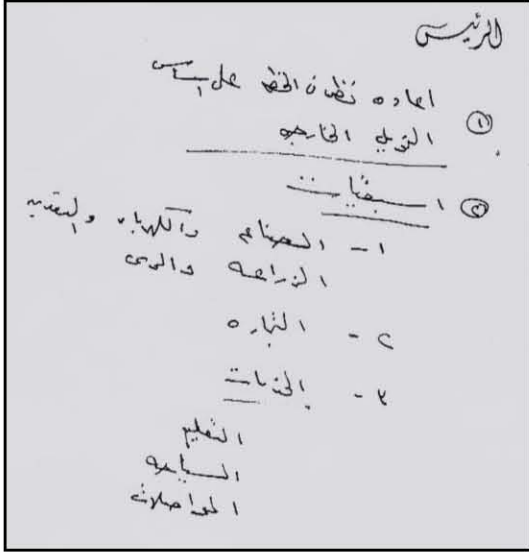 الرئيس
اعاده نظر فى الخطه على اساس
① التمويل الخارجى
② اسبقيات
١ - الصناعه والكهرباء والتعدين
الزراعه والرى
٢ - التجاره
٣ - الخدمات
التعليم
السياحه
المواصلات